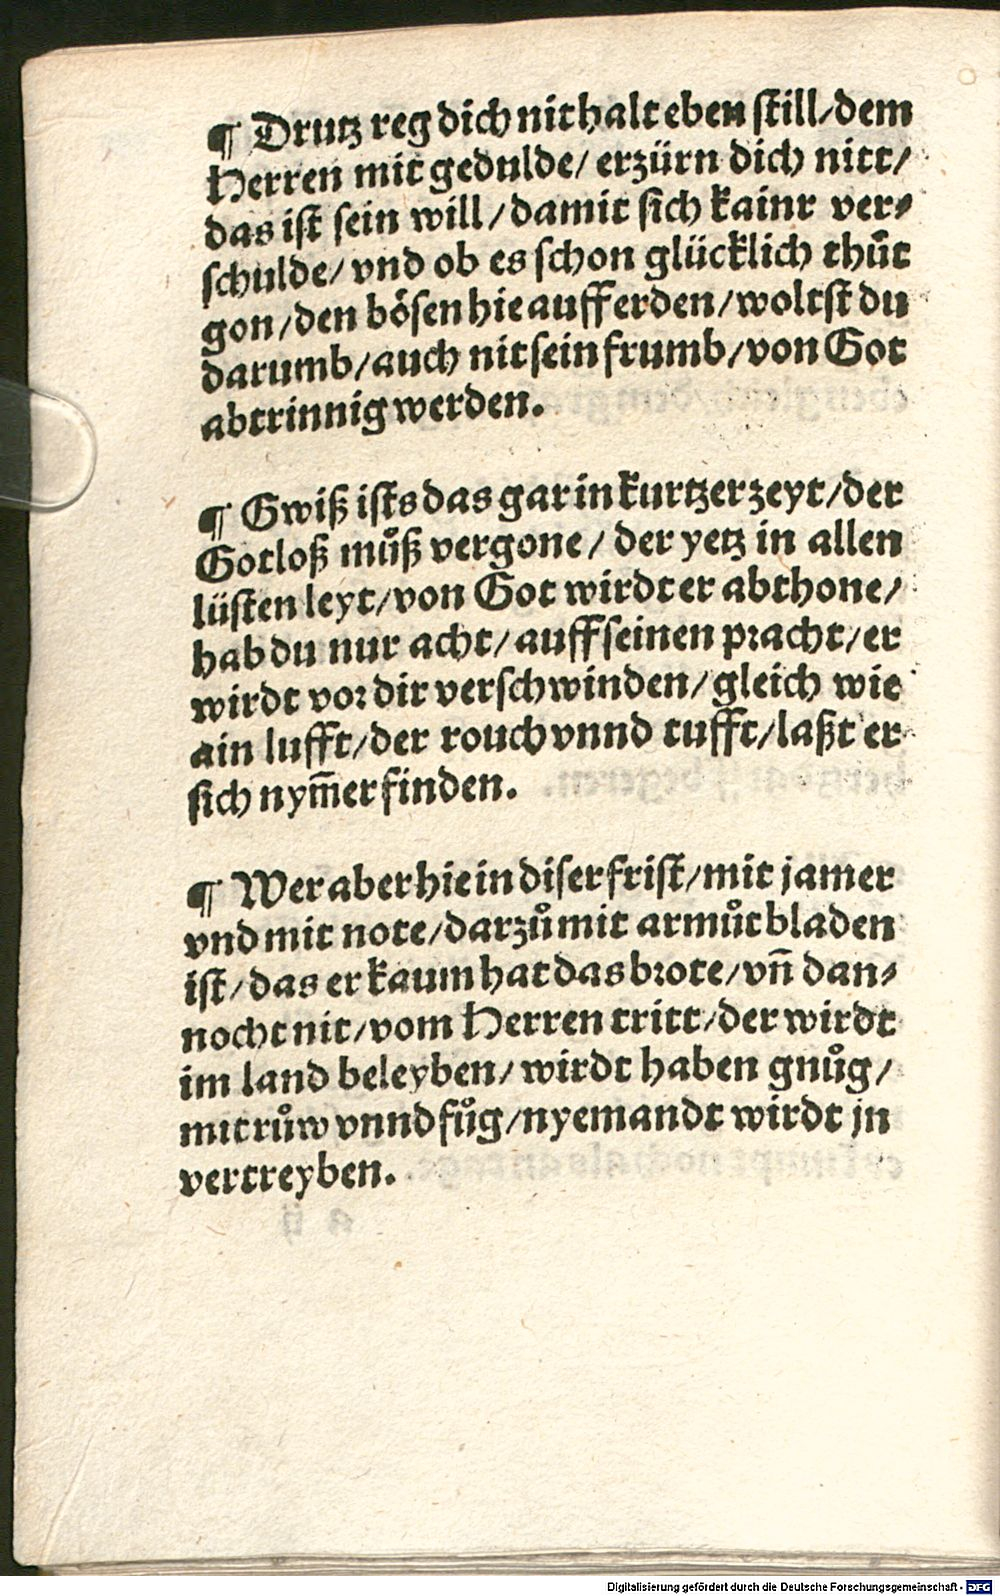 ¶ Drutz reg dich nit halt eben still/dem
Herren mit gedulde/ erzürn dich nitt/
das ist sein will/damit sich kainr ver⸗
schulde/ vnd ob es schon glücklich thuͦt
gon/den bösen hie auff erden/woltst du
darumb/auch nit sein frumb/von Got
abtrinnig werden.
¶ Gwiß ists das gar in kurtzer zeyt/der
Gotloß muͦß vergone/ der yetz in allen
lüsten leyt/von Got wirdt er abthone/
hab du nur acht/auff seinen pracht/er
wirdt vor dir verschwinden/gleich wie
ain lufft/der rouch vnnd tufft/laßt er
sich nym̅er finden.
¶ Wer aber hie in diser frist/mit jamer
vnd mit note/darzuͦ mit armuͦt bladen
ist/das er kaum hat das brote/vn̅ dan⸗
nocht nit/vom Herren tritt/der wirdt
im land beleyben/wirdt haben gnuͦg/
mit ruͦw vnnd fuͦg/nyemandt wirdt jn
vertreyben.
Digitalisierung gefördert durch die Deutsche Forschungsgemeinschaft - DFG